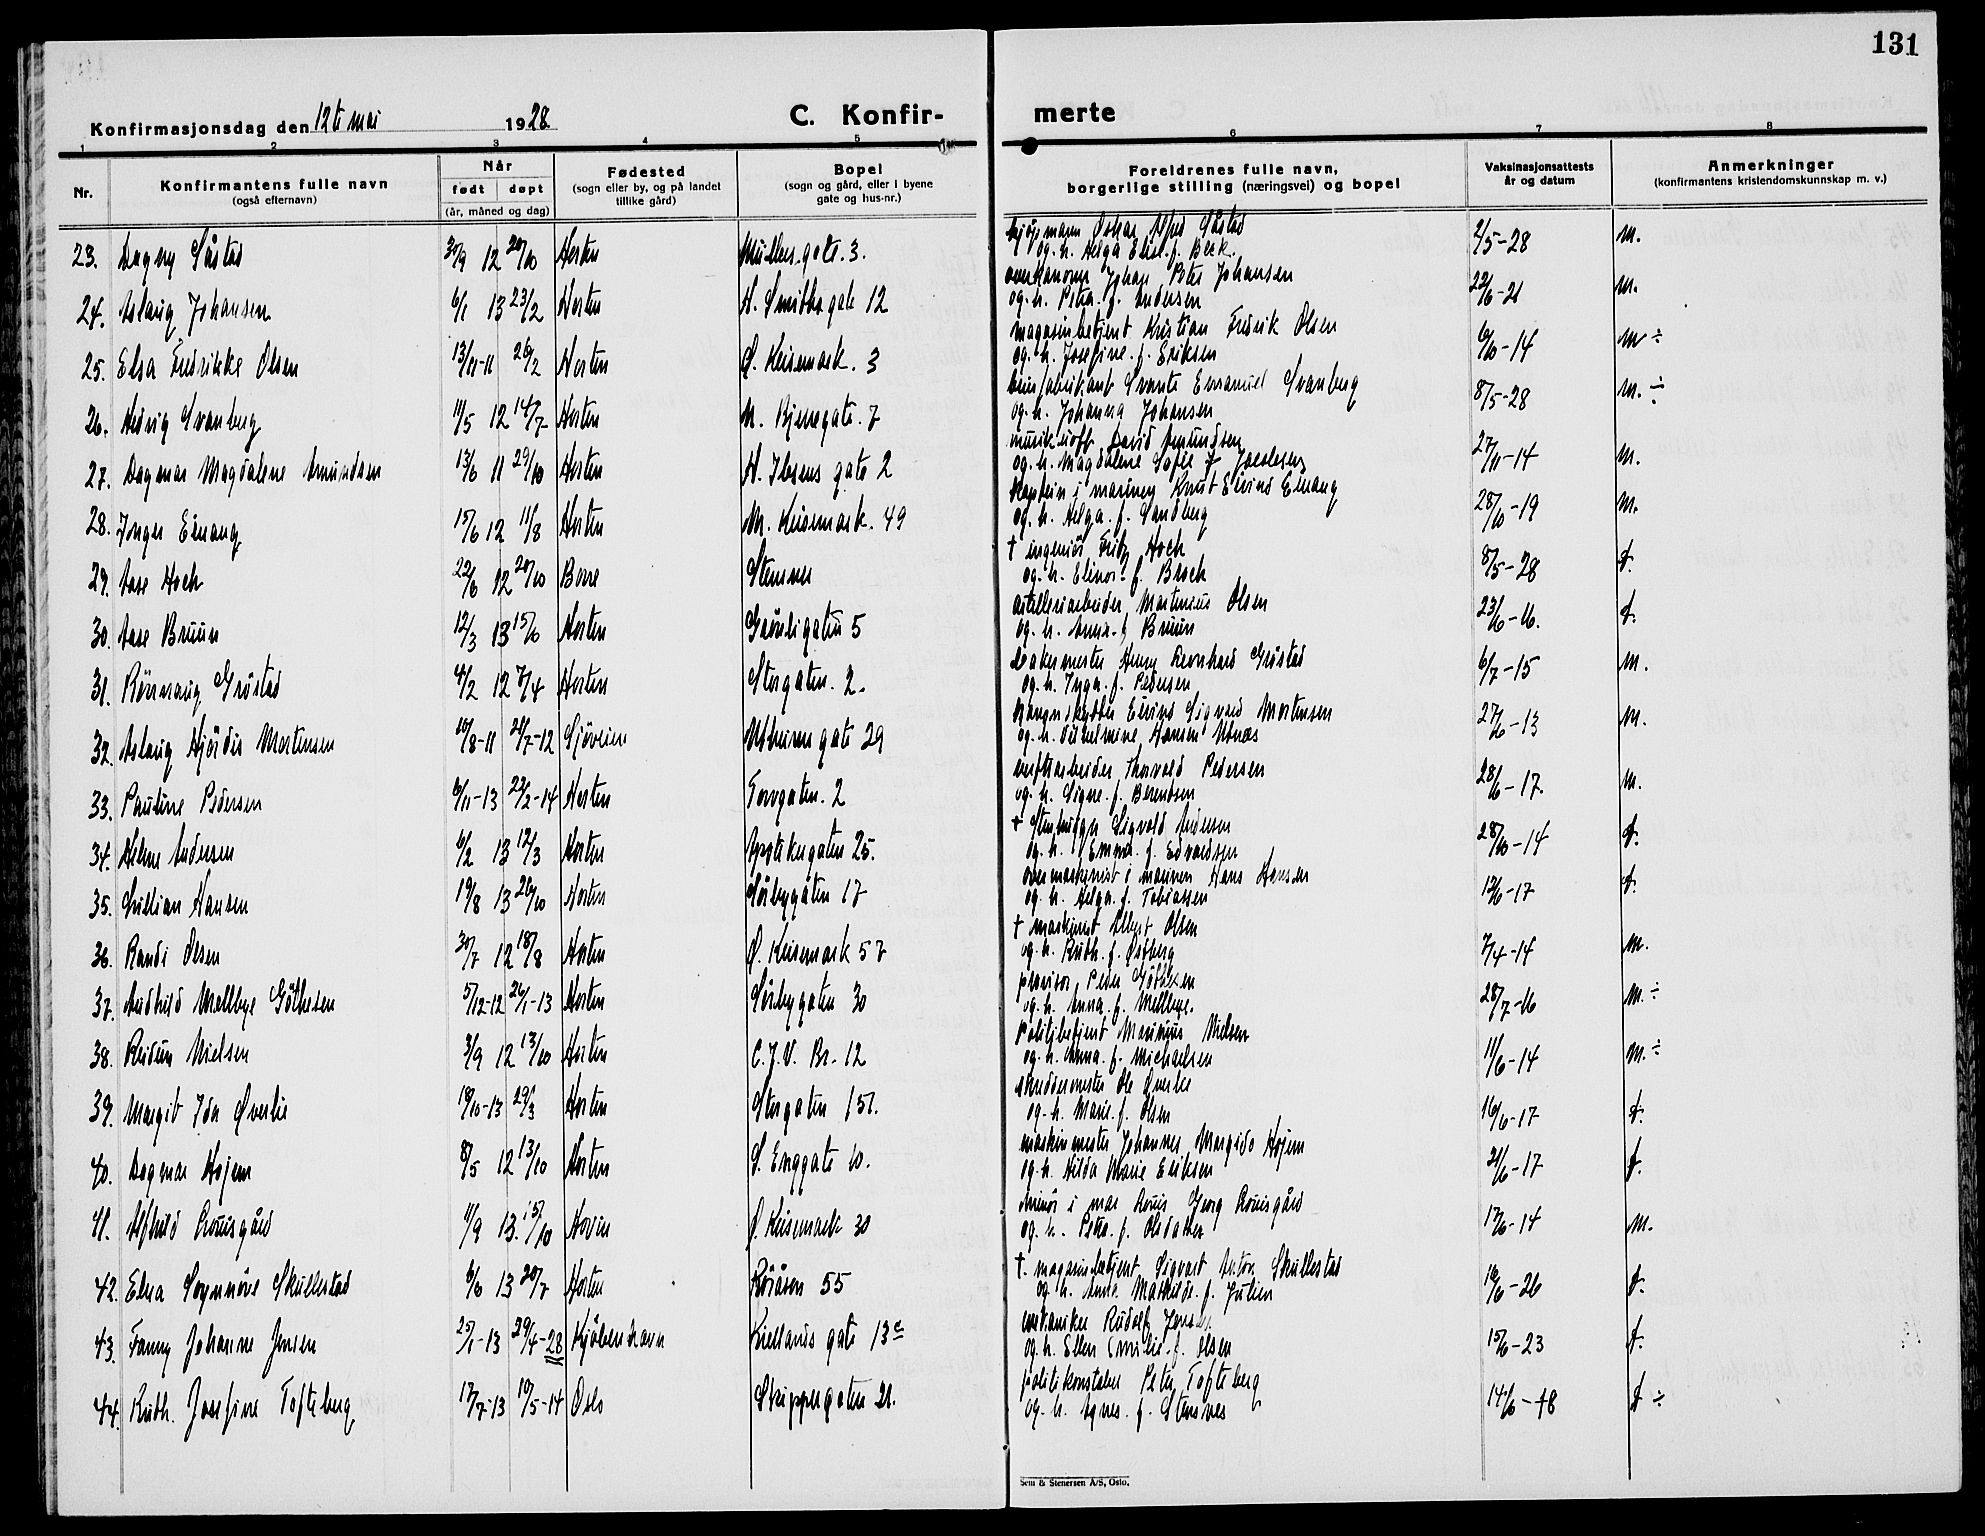 131
Konfirmasjonsdag den 12te mai 1928
C. Konfir-
merte
1 2 3 4 5 6 7 8
Nr.
Konfirmantens fulle navn
(også efternavn)
Når
født døpt
(år, måned og dag)
Fødested
(sogn eller by, og på landet
tillike gård)
Bopel
(sogn og gård, eller i byene
gate og hus-nr.)
Foreldrenes fulle navn,
borgerlige stilling (næringsvei) og bopel
Vaksinasjonsattests
år og datum
Anmerkninger
(konfirmantens kristendomskunnskap m. v.)
23. Dagny Såstad 30/9 12 20/10 Horten Müllers gate. 3. Oskar Såstad 2/5-28 m.
og. h. Helga Elise. f. Beck.
24. Aslaug Johansen 6/1 13 23/2 Horten H. Smiths gate 12 Johan Peter Johansen 22/6-21 m.
og. h. Petra. f. Andersen
25. Elsa Fredrikke Olsen 13/11-11 26/2 Horten Ø. Keisemark. 3 magasinbetjent Kristian Fredrik Olsen 6/10-14 m ÷
og. h. Josefine. f. Eriksen
26. Hedvig Svanberg 11/5 12 14/7 Horten N. Bjerregate. 7 Svante Emanuel Svanberg 8/5-28 m. ÷
og. h. Johanna Johansen
27. Dagmar Magdalene Amundsen 13/6 11 29/10 Horten H. Ibsens gate 2 David Amundsen 27/11-14 m.
og. h. Magdalene Sofie f.
28. Inger Einang 15/6 12 11/8 Horten M. Keisemark. 49 Kaptein i marinen Knut Eivind Einang 28/10-19 m.
og. h. Helga. f. Sandberg
29. Aase Hoch 22/6 12 20/10 Borre † ingeniör Fritz Hoch 8/5-28 d.
og. h. Elinor f. Broch
30. Aase Bruun 12/3 13 15/6 Horten Grönligaten 5 artilleriarbeider Martinius Olsen 23/6-16. d.
og. h. Anna. f. Bruun
31. Rönnaug Gröstad 4/2 12 7/4 Horten Storgaten. 2. bakermester Henry Leonhard Gröstad 6/7-15 m.
og. h. Inga. f. Pedersen
32. Aslaug Hjördis Mortensen 10/8-11 21/7-12 29 Eivind Sigvard Mortensen 27/6-13 m.
og. h. Vilhelmine Hansen
33. Pauline Pedersen 6/11-13 22/2-14 Horten Torvgaten. 2 verftsarbeider Thorvald Pedersen 28/6-17. m.
og. h. Signe. f. Berentsen
34. Helene Andersen 6/2 13 12/3 Horten Apotekergaten 25. † Stenhugger Sigvald Andersen 28/10-14 d.
og. h. Emma. f. Edvardsen
35. Lillian Hansen 19/8 13 26/10 Horten Sörbygaten 17 overmaskinist i marinen Hans Hansen 12/6-17 d.
og. h. Helga. f. Tobiassen
36. Randi Olsen 30/7 12 18/8 Horten Ø. Keisemark 57 † maskinist Albert Olsen 7/4-14 m.
og. h. Ruth. f. Østberg
37. Audhild Mellbye Göthesen 5/12-12 26/1-13 Horten Sörbygaten 30 provisor Peder Göthesen 28/7-16 m. ÷
og. h. Anna. f. Mellbye.
38. Reidun Nielsen 3/9 12 13/10 Horten C. J. V. Br. 12 Politibetjent Marinius Nielsen 11/6-14 m. ÷
og. h. Anna. f. Michaelsen
39. Margit Ida Øverlie 18/10-13 29/3 Horten Storgaten 151. skreddermester Ole Øverlie 16/6-17 d.
og. h. Marie. f. Olsen
40. Dagmar Hojem 8/5 12 13/10 Horten S. Enggate 10. maskinmester Johannes Margido Hojem 21/6-17 d.
og. h. Hilda Marie Eriksen
41. Alfhild Louisgård 11/9 13. 15/10 Ø. Keisemark 30 minör i mar Louis Georg Louisgård 17/6-14 m.
og. h. Petra. f. Olsdatter
42. Elna Synnöve Skullestad 6/6 13 20/7 Horten Röråsen 55 † magasinbetjent Sigvart Anton Skullestad 16/6-26 d.
og. h. Anna Mathilde. f. Julien
43. Fanny Johanne Jensen 25/1-13 29/4-28 Kjöbenhavn Kiellands gate 13c mekaniker Rudolf Jensen. 15/6-23 d.
og. h. Ellen Emilie. f. Olsen
44. Ruth. Josefine Tofteberg 17/7-13 10/5-14 Oslo Skippergaten 21. politikonstabel Peter Tofteberg 14/6-18 d ÷
og. h. Agnes. f. Stensnes
Sem & Stenersen A/S, Oslo.